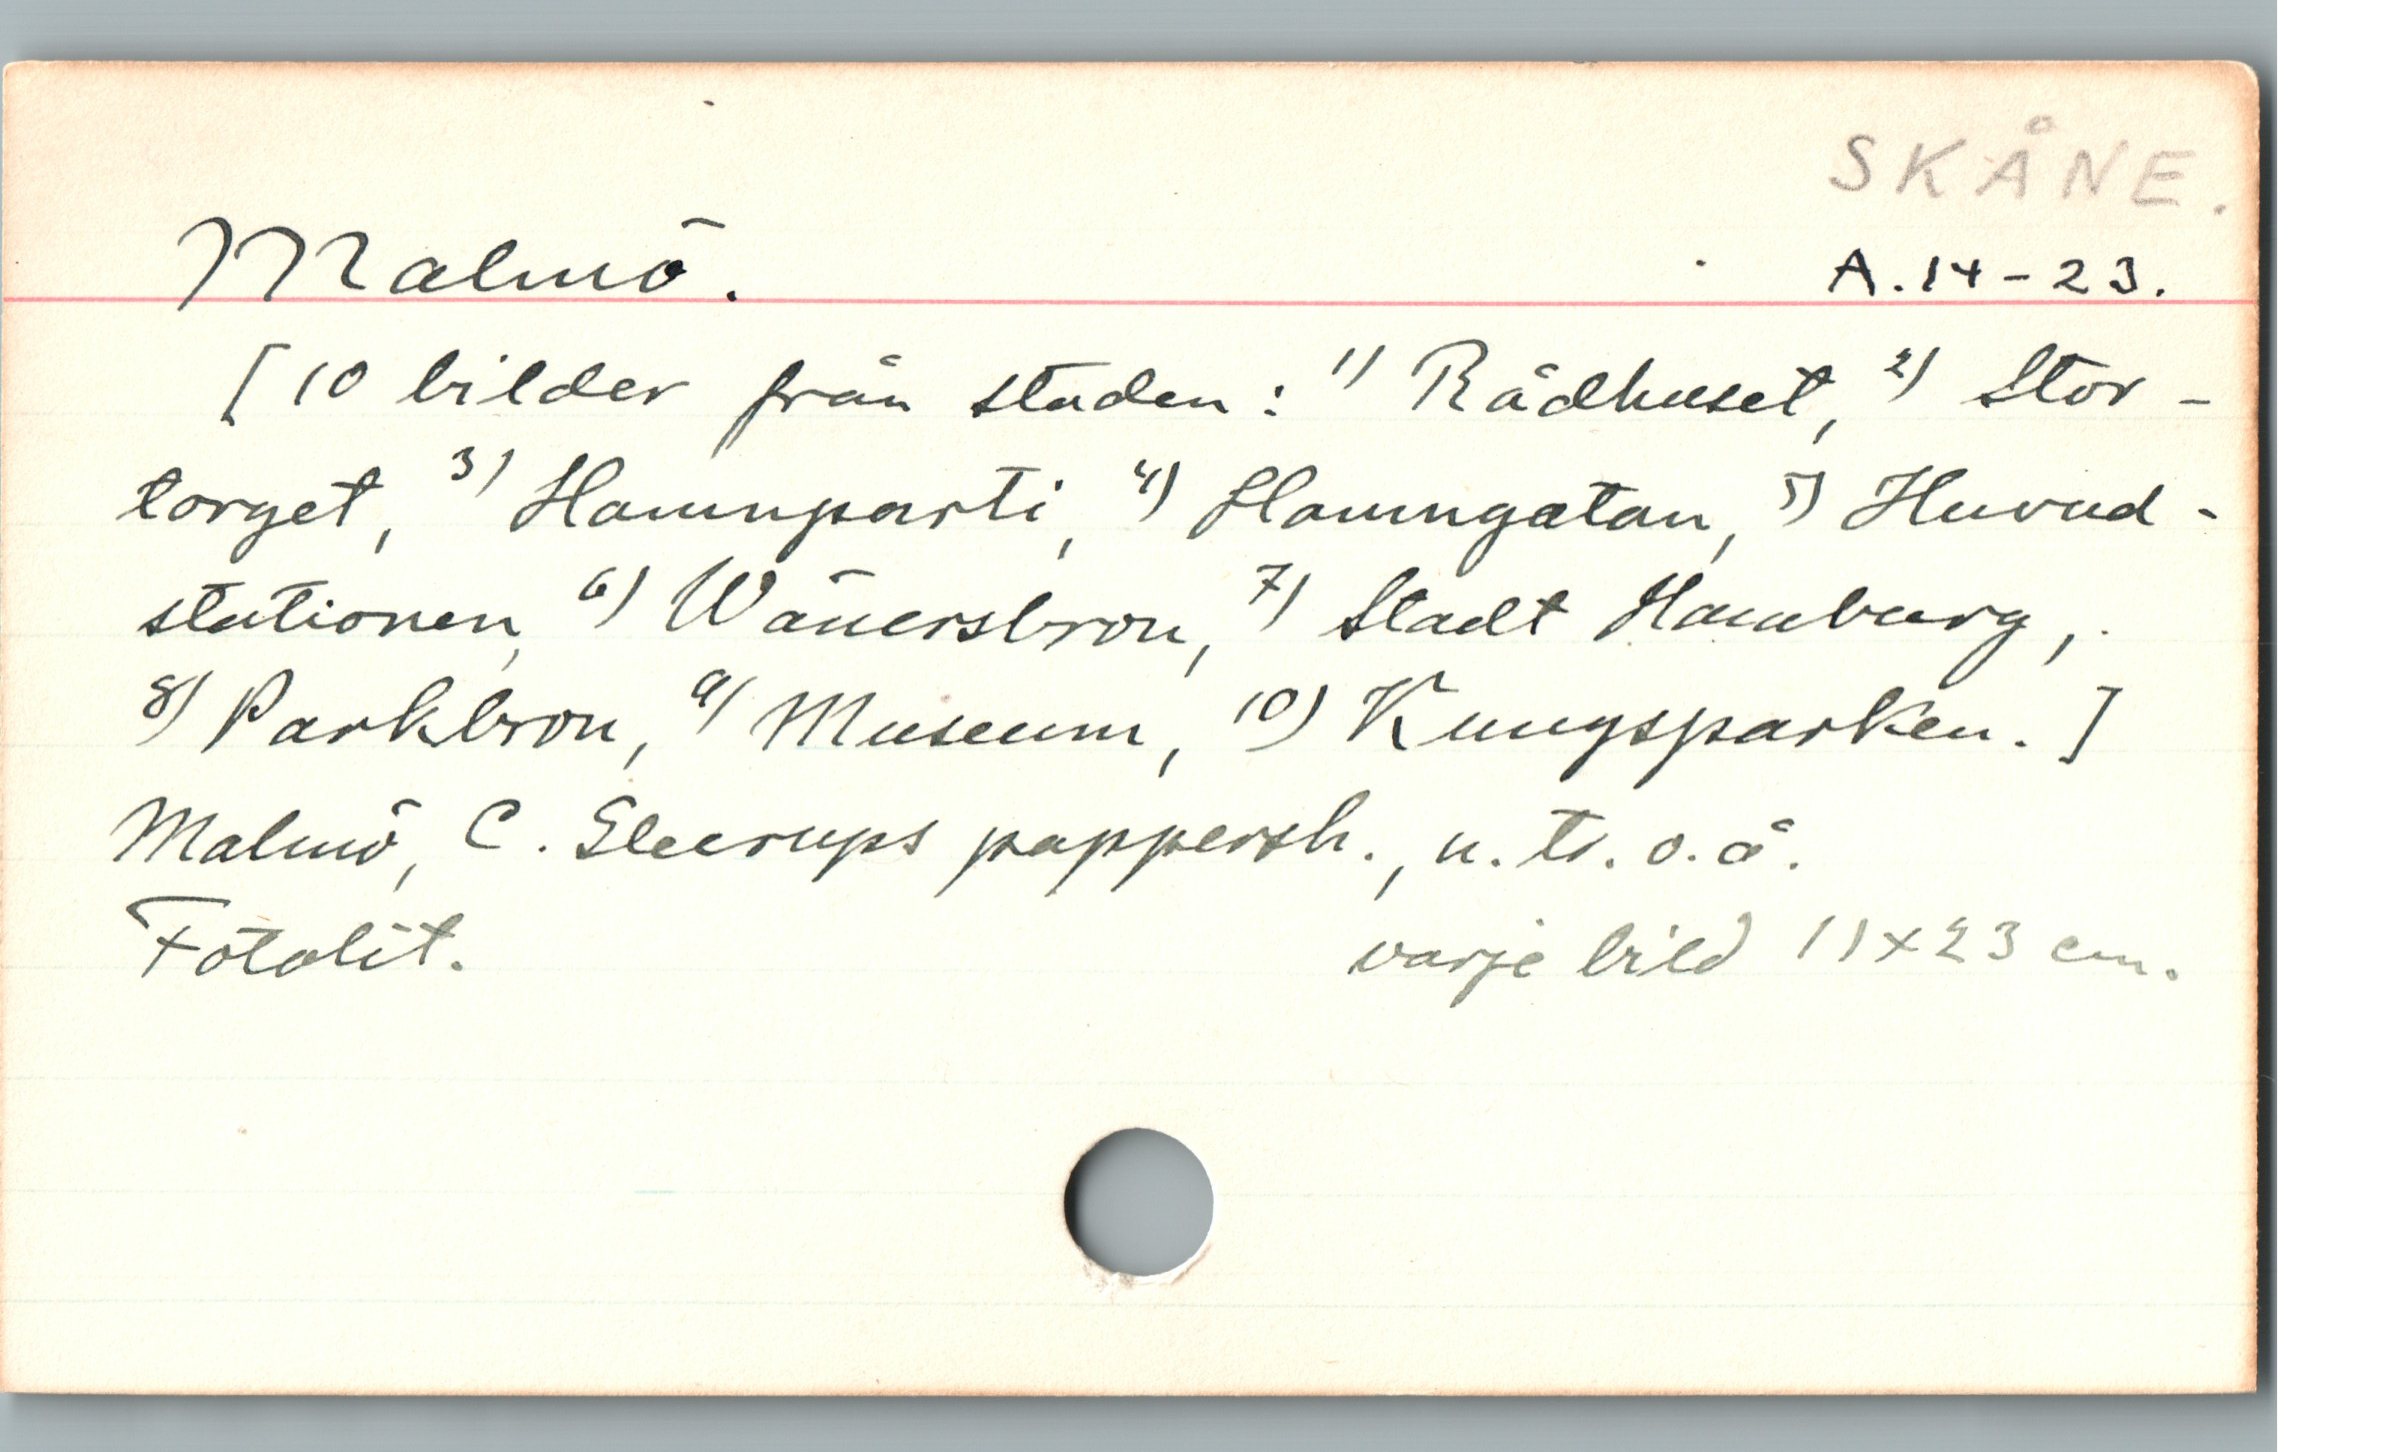 SKÅNE.
Malmö.
A.14-23.
[10 bilder från staden: 1) Rådhuset, 2) Stor-
torget, 3) Hamnparti, 4) Hamngatan, 5) Huvud-
stationen, 6) Wänersbron, 7) Stadt Hamburg,
8) Parkbron, 9) Museum, 10) Kungsparken.]
Malmö, C. Gleerups pappersh., u. tr. o. å.
Fotolit.
varje bild 11x23 cm.